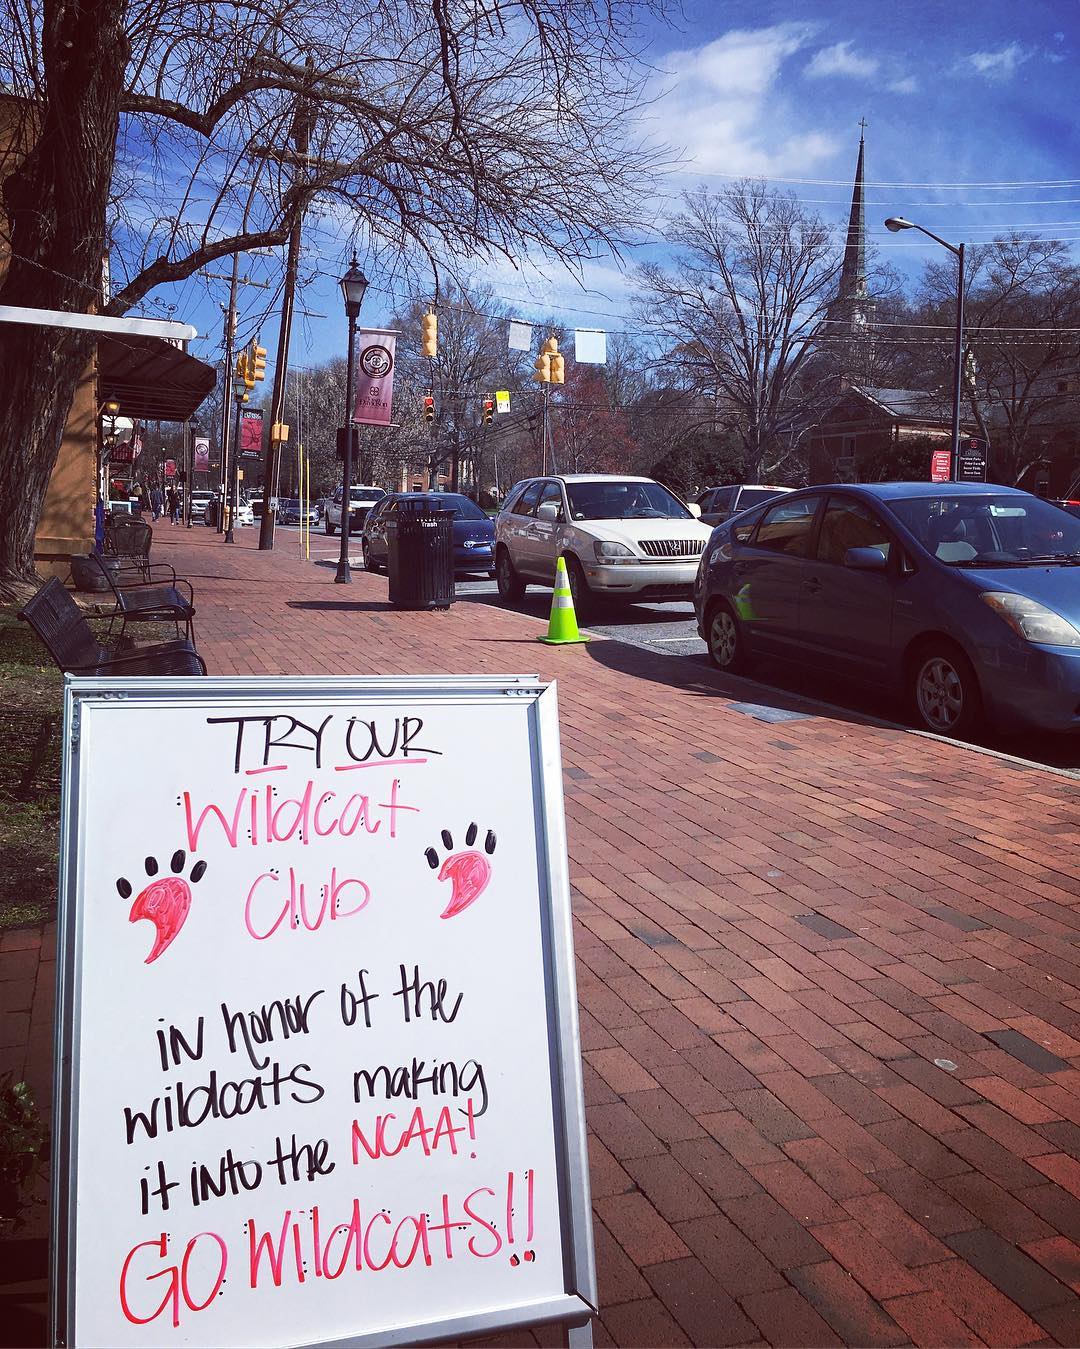 TRY OUR
Wildcat
Club
in honor of the
wildcats making
it into the NCAA!
GO Wildcats!!
Trash
Davidson